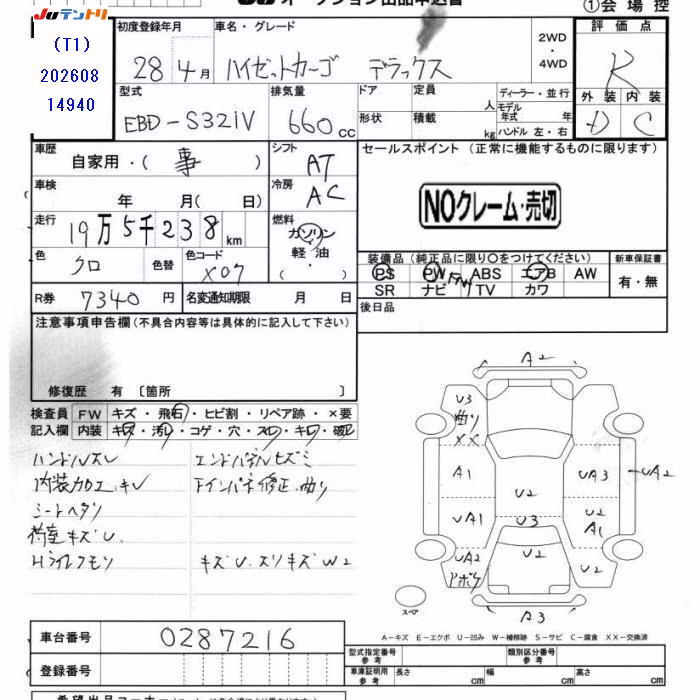 JUテントリ
オークション出品申込書
①会場控
(T1)
202608
14940
初度登録年月
28年4月
車名・グレード
ハイゼットカーゴ デラックス
2WD
・
4WD
評価点
R
型式
EBD-S321V
排気量
660cc
ドア
定員
人
形状
積載
kg
ディーラー・並行
モデル年式 年
ハンドル 左・右
外装 内装
D C
車歴
自家用・(事)
シフト
AT
セールスポイント (正常に機能するものに限ります)
車検
年 月( 日)
冷房
AC
NOクレーム・売切
走行
19万5千238km
燃料
ガソリン
・
軽油
・
( )
色
クロ
色替
色コード
X07
装備品(純正品に限り○をつけてください)
新車保証書
PS PW ABS エアB AW
SR ナビ TV カワ
有・無
R券
7340円
名変通知期限 月 日
後日品
注意事項申告欄(不具合内容等は具体的に記入して下さい)
修復歴 有 〔箇所 〕
検査員記入欄
FW キズ・飛石・ヒビ割・リペア跡・×要
内装 キズ・汚れ・コゲ・穴・スレ・キレ・破レ
ハンドルスレ
内装加工、キレ
シートヘタリ
荷室キズU
Hライトクモリ
エンドパネルヒズミ
キズU、スリキズ W2
A2
U3
曲り
XX
A1
UA1
UA2
U2
U3
U2
UA3
U2
A1
U2
UA2
A3
スペア
A-キズ E-エクボ U-凹み W-補修跡 S-サビ C-腐食 XX-交換済
車台番号
0287216
登録番号
型式指定番号
参考
類別区分番号
参考
車庫証明用
参考
長さ cm
幅 cm
高さ cm